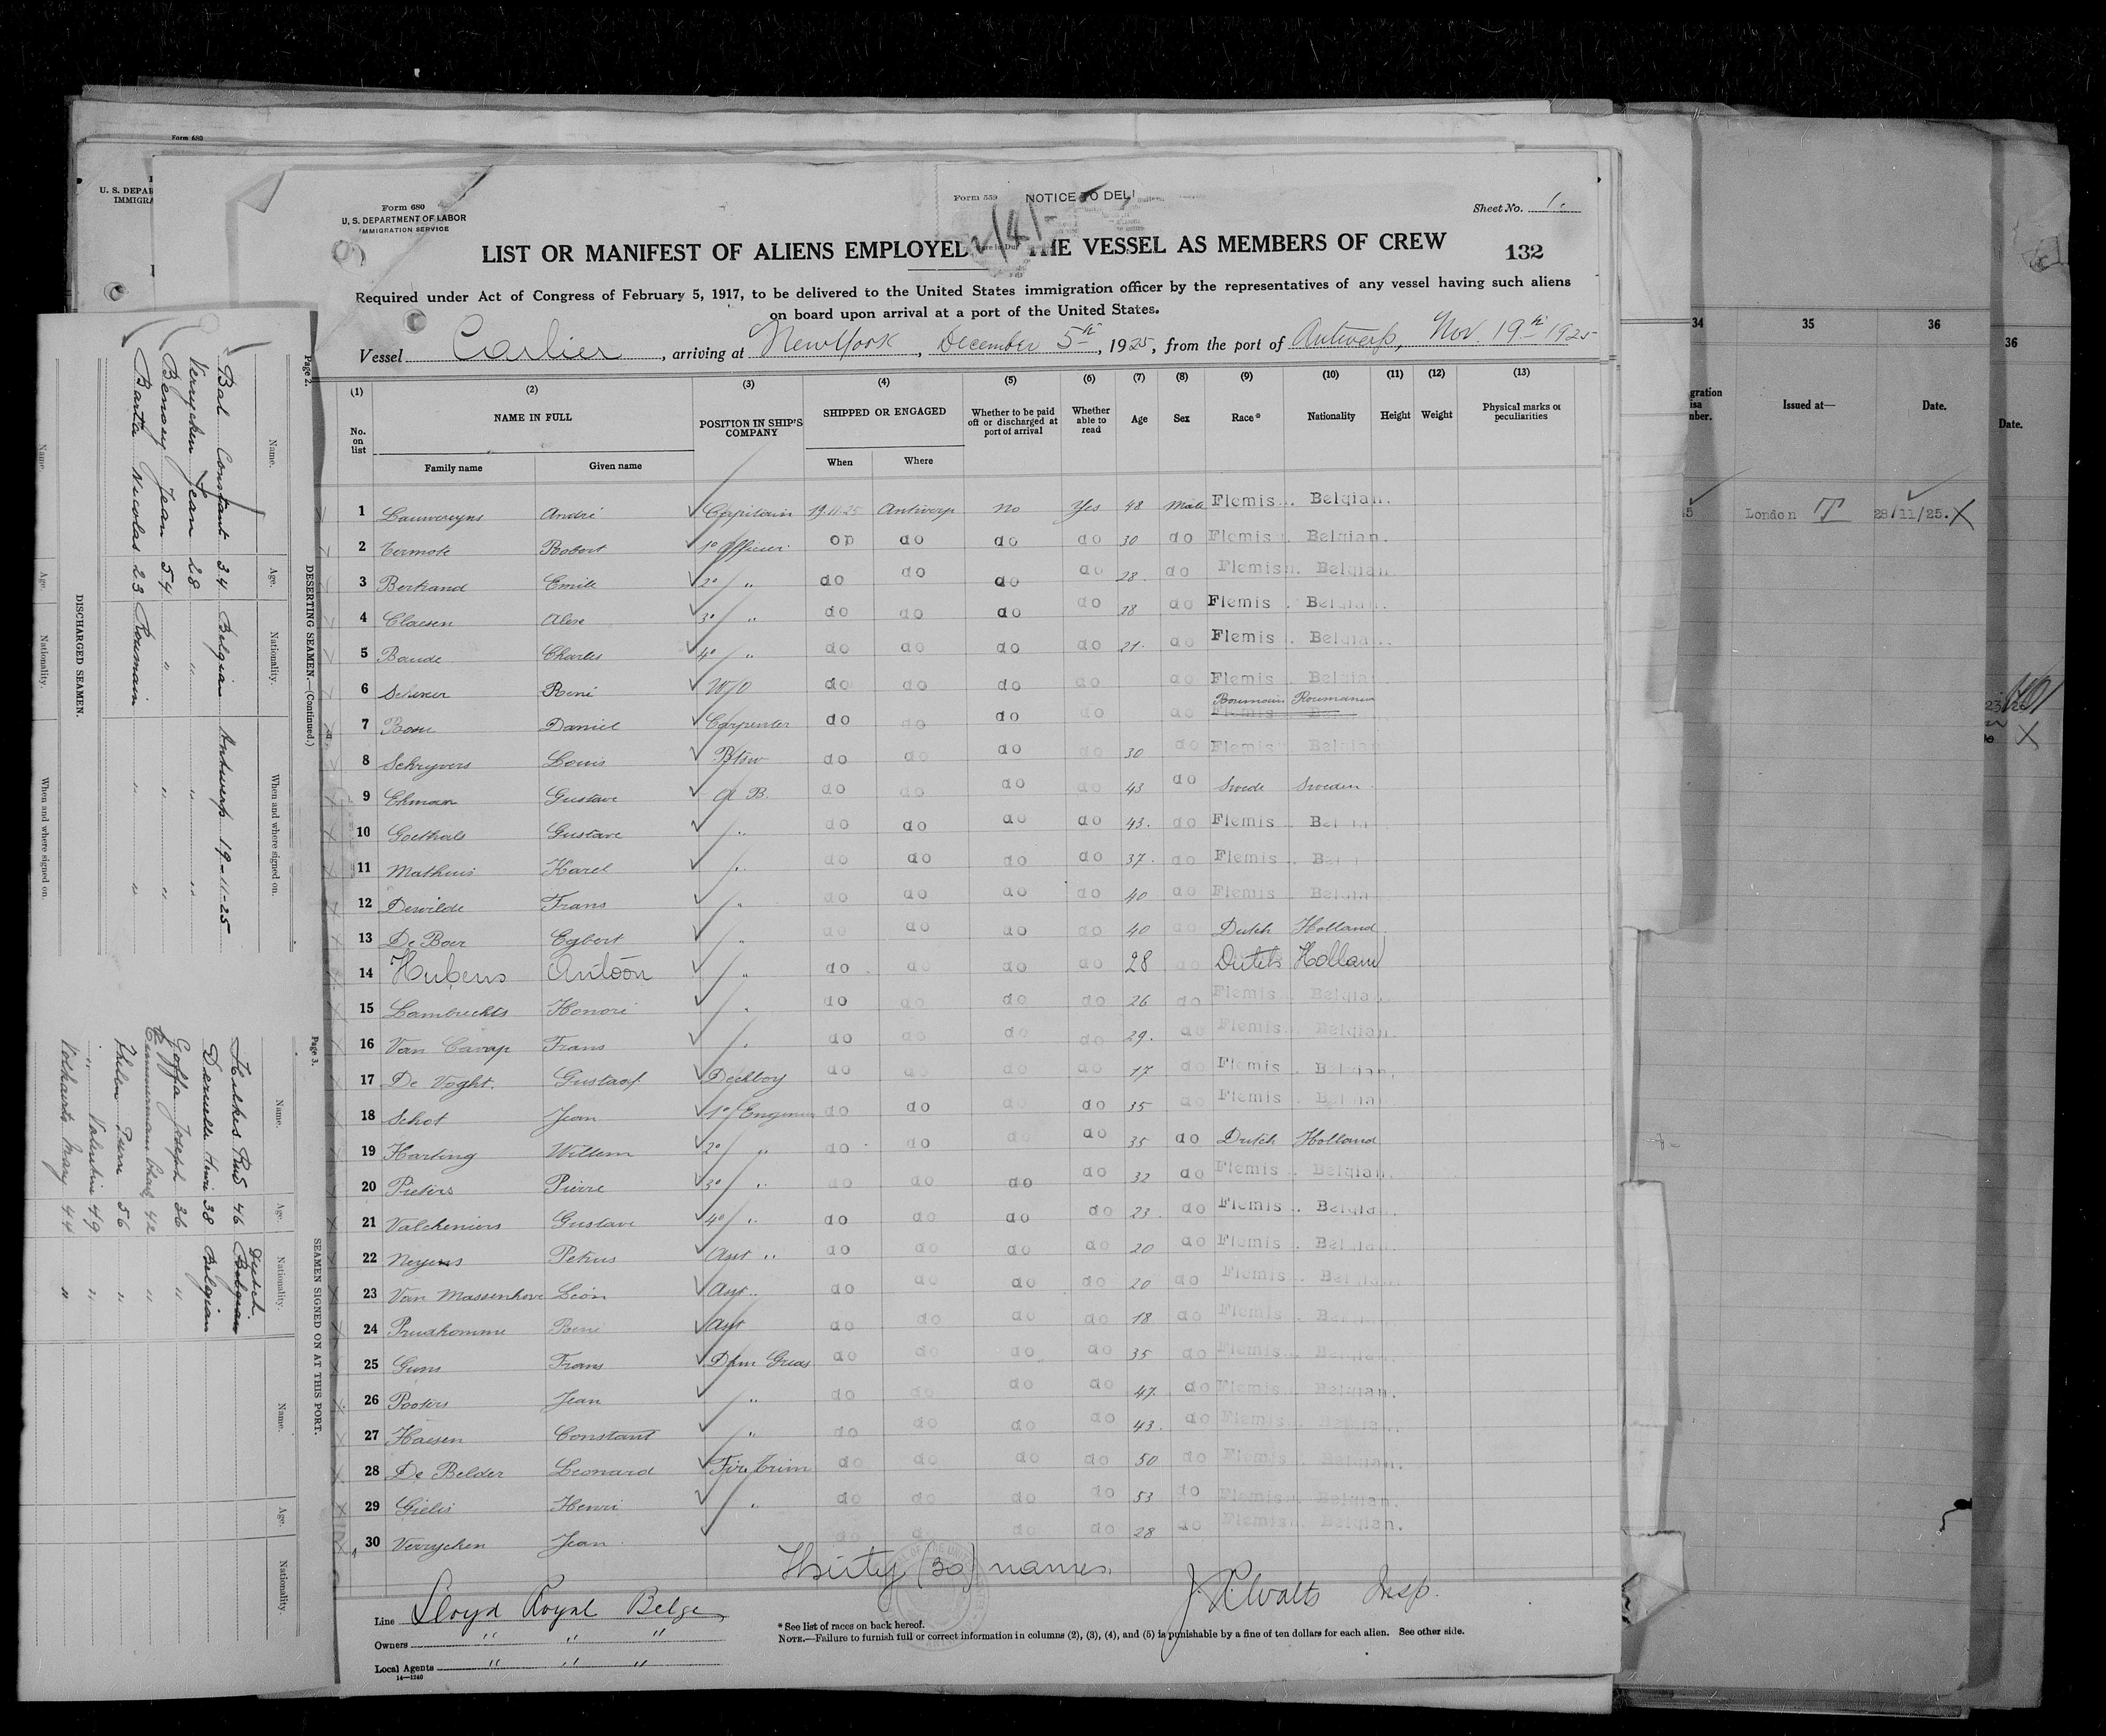 Form 680
U. S. DEPARTMENT OF LABOR
IMMIGRATION SERVICE
Form 559 NOTICE TO DELI
Sheet No. 1.
LIST OR MANIFEST OF ALIENS EMPLOYED THE VESSEL AS MEMBERS OF CREW
132
Required under Act of Congress of February 5, 1917, to be delivered to the United States immigration officer by the representatives of any vessel having such aliens
on board upon arrival at a port of the United States.
Vessel Carlier, arriving at New York, December 5th, 1925, from the port of Antwerp, Nov. 19th 1925
(1) (2) (3) (4) (5) (6) (7) (8) (9) (10) (11) (12) (13)
No. on list NAME IN FULL POSITION IN SHIP'S COMPANY SHIPPED OR ENGAGED Whether to be paid off or discharged at port of arrival Whether able to read Age Sex Race* Nationality Height Weight Physical marks or peculiarities
Family name Given name When Where
1 Lauwereyns André Capitain 19.11.25 Antwerp no Yes 48 Male Flemis. Belgian.
2 Termote Robert 1° Officier do do do 30 do Flemis. Belgian.
3 Bertrand Emile 2° " do do do do 28 do Flemish. Belgian
4 Claesen 3° " do do do do 28 do Flemis. Belgian.
5 Baude Charles 4° " do do do do 21 do Flemis. Belgian.
6 René W/O do do do do do Flemis. Belgian
7 Daniel Carpenter do do do do do Roumain Roumania
8 Schryvers Louis Btsw do do do do 30 do Flemis Belgian
9 Ehman Gustave A B. do do do do 43 do Swede Sweden
10 Goethals Gustave " do do do do 43. do Flemis Belgian
11 Matheus Karel " do do do do 37. do Flemis
12 Dewilde Frans " do do do do 40 do Flemis Belgian
13 De Boer Egbert " do do do do 40 do Dutch Holland
14 Hubens Antoon " do do do do 28 do Dutch Holland
15 Lambrechts Honoré " do do do do 26 do Flemis. Belgian.
16 Van Frans " do do do do 29. do Flemis. Belgian.
17 De Voght. Gustaaf Deckboy do do do do 17 do Flemis. Belgian.
18 Schot Jean 1° Engineer do do do do 35 do Flemis. Belgian
19 Harting Willem 2° " do do do do 35 do Dutch Holland
20 Pieters Pierre 3° " do do do do 32 do Flemis. Belgian.
21 Valckeniers Gustave 4° " do do do do 23 do Flemis. Belgian.
22 Neyens Petrus Asst " do do do do 20 do Flemis. Belgian
23 Van Massenhove Léon Asst " do do do do 20 do Flemis. Belgian
24 Prudhomme René Asst do do do do 18 do Flemis. Belgian
25 Guns Frans Greas. do do do do 35 do Flemis. Belgian
26 Pooters Jean " do do do do 47. do Flemis. Belgian.
27 Haesen Constant " do do do do 43. do Flemis. Belgian.
28 De Belder Leonard Fire trim do do do do 50 do Flemis. Belgian.
29 Gielis Henri " do do do do 53 do Flemish. Belgian.
30 Verrycken Jean do do do do 28 do Flemish. Belgian.
Thirty (30) names.
Insp.
Line Lloyd Royal Belge
Owners " " "
Local Agents " " "
14—1240
*See list of races on back hereof.
NOTE.—Failure to furnish full or correct information in columns (2), (3), (4), and (5) is punishable by a fine of ten dollars for each alien. See other side.
Form 680
U. S. DEPAR
IMMIGRA
Page 2.
DESERTING SEAMEN.—(Continued.)
Name. Age. Nationality. When and where signed on.
Bal Constant 34 Belgian Antwerp 19-11-25
Verrycken Jean 28 " "
Benoey Jean 54 " " "
Bartta Nicolas 23 Roumain " "
DISCHARGED SEAMEN.
Name. Age. Nationality. When and where signed on.
Page 3.
SEAMEN SIGNED ON AT THIS PORT.
Name. Age. Nationality. Name. Age. Nationality.
46 Dutch Belgian
Deruelle Henri 38 Belgian
Goffa Joseph 36 "
42 "
56 "
" Valentin 49 "
Volkaerts 44 "
34 35 36
gration
isa
nber.
Issued at— Date.
5 London T 28/11/25. X
36
Date.
X